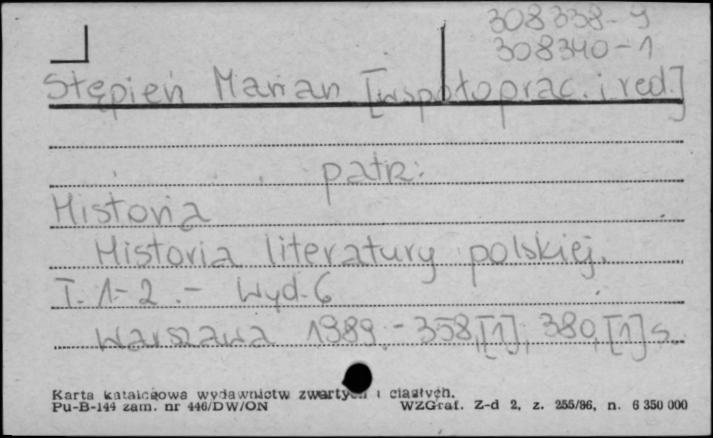 308338-9
308340-1
Stępień Marian [współoprac. i red.]
patrz:
Historia
Historia literatury polskiej.
T. 1-2.- Wyd. 6
Warszawa 1989.- 358,[1]; 380,[1] s.
Karta katalogowa wydawnictw zwartych i ciągłych.
Pu-B-144 zam. nr 446/DW/ON WZGraf. Z-d 2, z. 255/86, n. 6 350 000